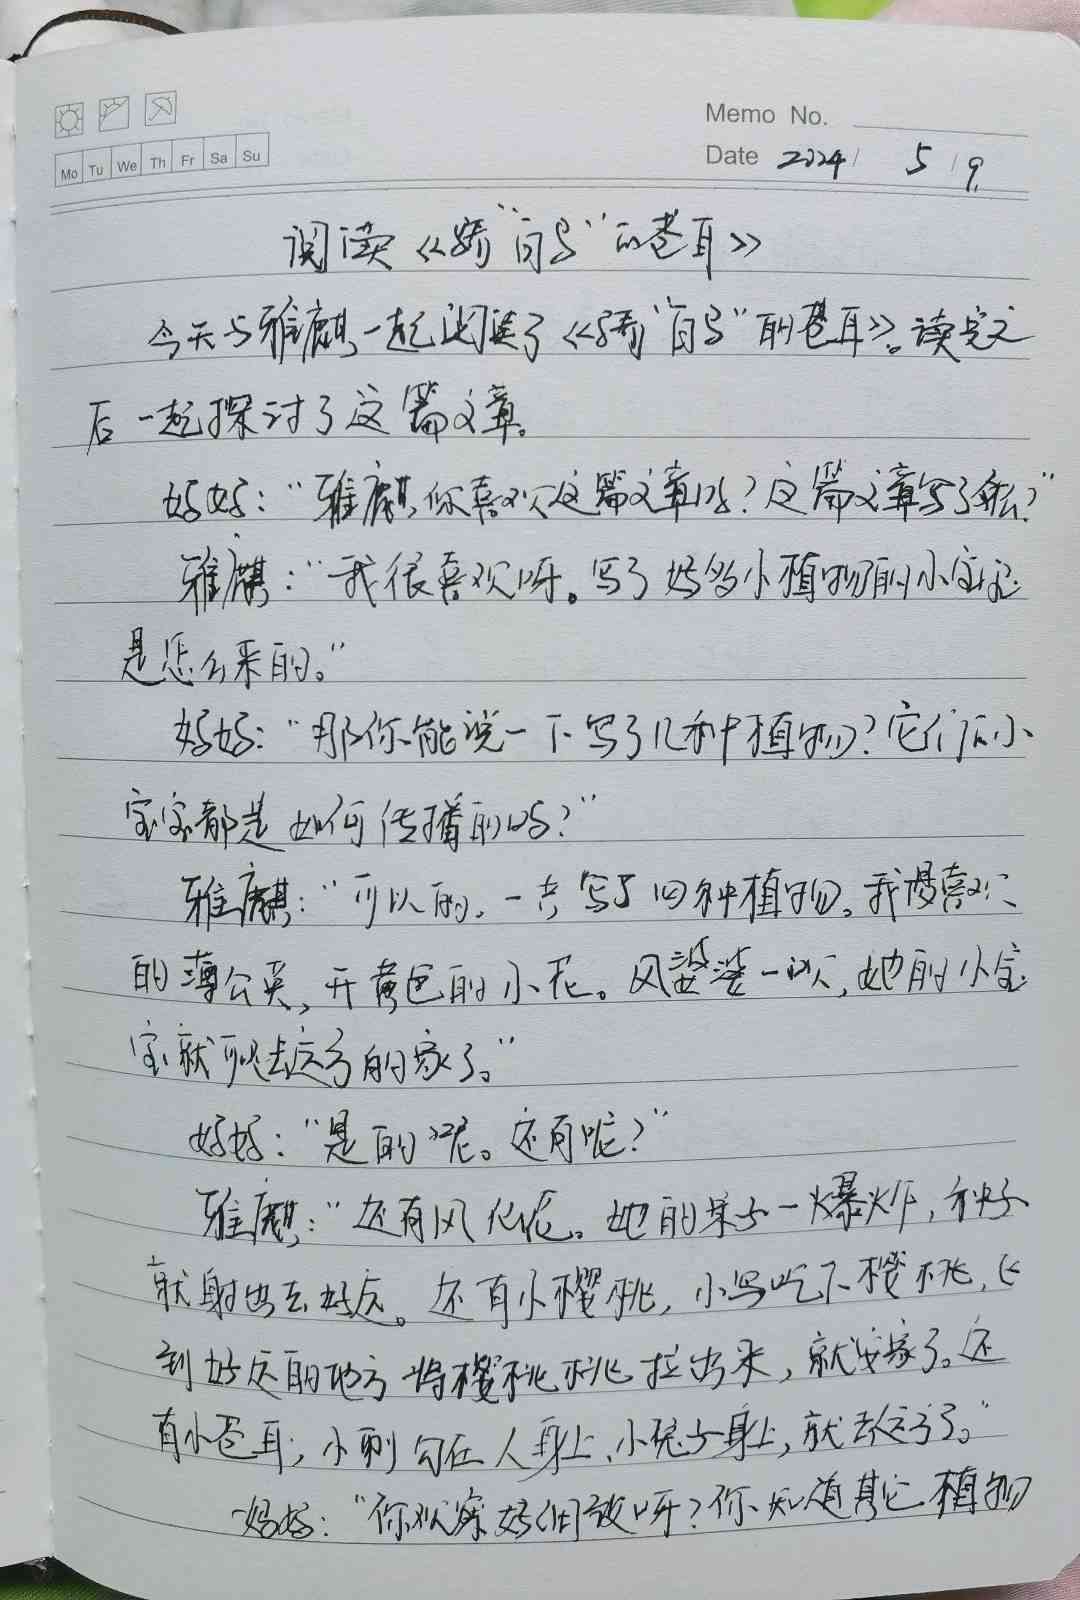 Memo No.
Mo Tu We Th Fr Sa Su
Date 2024/ 5/9
阅读《骄"自马"的苍耳》
今天与雅麒一起阅读了《骄"自马"的苍耳》。读完文
后一起探讨了这篇文章。
妈妈:"雅麒你喜欢这篇文章吗?这篇文章写了什么?"
雅麒:"我很喜欢呀。写了好多小植物的小宝宝
是怎么来的。"
妈妈:"那你能说一下写了几种植物?它们的小
宝宝都是如何传播的吗?"
雅麒:"可以的。一共写了四种植物。我最喜欢
的薄公英,开黄色的小花。风婆婆一吹,她的小宝
宝就可以去远方的家了。"
妈妈:"是的呢。还有呢?"
雅麒:"还有凤仙花。她的果子一爆炸,种子
就射出去好远。还有小樱桃,小鸟吃下樱桃,飞
到好远的地方将樱桃桃拉出来,就安家了。还
有小苍耳,小刺勾在人身上、小兔子身上,就去远方了。"
妈妈:"你观察好仔细呀?你知道其它植物